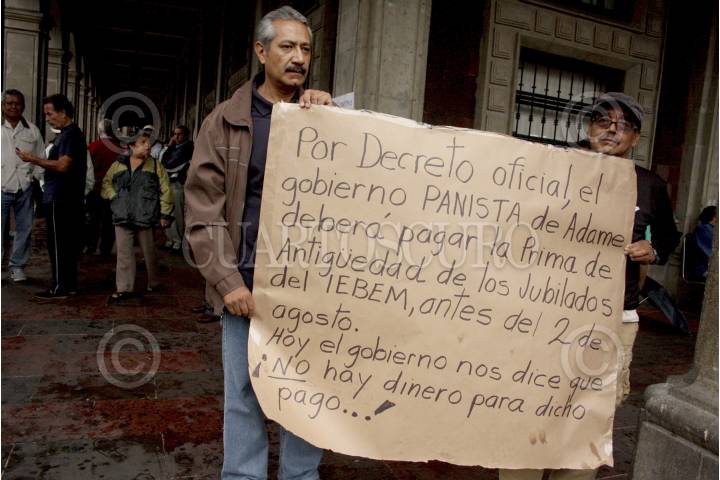 Por Decreto oficial, el
gobierno PANISTA de Adame
deberá pagar la Prima de
Antigüedad de los Jubilados
del IEBEM, antes del 2 de
agosto.
Hoy el gobierno nos dice que
¡NO hay dinero para dicho
pago...!
CUARTOSCURO